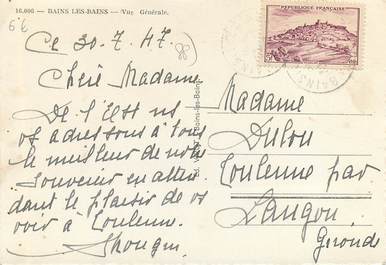 16,006 — BAINS LES-BAINS — Vue Générale.
6 E
Ce 30.7.47.
Chère Madame
De l'Est ns
vs adressons à tous
le meilleur de notre
souvenir en atten
dant le plaisir de vs
voir à Toulenne.
RÉPUBLIQUE FRANÇAISE
Madame
Dulou
Toulenne par
Langon
Gironde